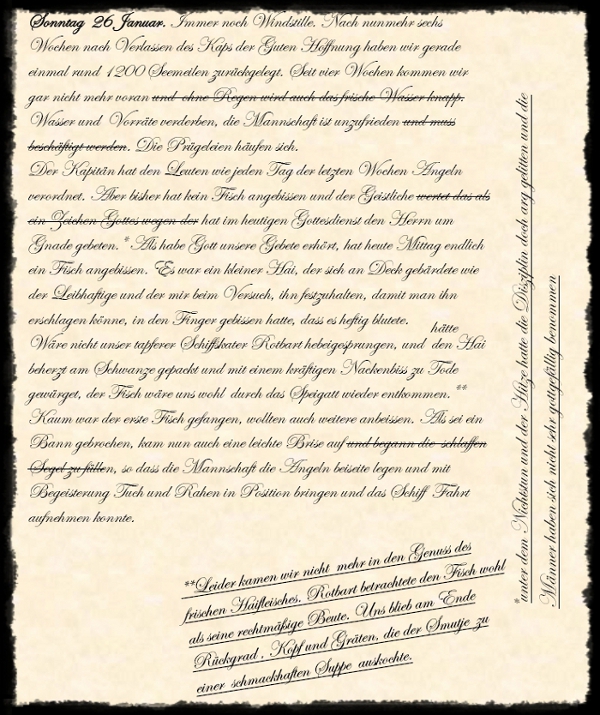 Sonntag 26 Januar. Immer noch Windstille. Nach nunmehr sechs
Wochen nach Verlassen des Kaps der Guten Hoffnung haben wir gerade
einmal rund 1200 Seemeilen zurückgelegt. Seit vier Wochen kommen wir
gar nicht mehr voran und ohne Regen wird auch das frische Wasser knapp.
Wasser und Vorräte verderben, die Mannschaft ist unzufrieden und muss
beschäftigt werden. Die Prügeleien häufen sich.
Der Kapitän hat den Leuten wie jeden Tag der letzten Wochen Angeln
verordnet. Aber bisher hat kein Fisch angebissen und der Geistliche wertet das als
ein Zeichen Gottes wegen der hat im heutigen Gottesdienst den Herrn um
Gnade gebeten. * Als habe Gott unsere Gebete erhört, hat heute Mittag endlich
ein Fisch angebissen. Es war ein kleiner Hai, der sich an Deck gebärdete wie
der Leibhaftige und der mir beim Versuch, ihn festzuhalten, damit man ihn
erschlagen könne, in den Finger gebissen hatte, dass es heftig blutete.
hätte
Wäre nicht unser tapferer Schiffskater Rotbart hebeigesprungen, und den Hai
beherzt am Schwanze gepackt und mit einem kräftigen Nackenbiss zu Tode
gewürget, der Fisch wäre uns wohl durch das Speigatt wieder entkommen. **
Kaum war der erste Fisch gefangen, wollten auch weitere anbeissen. Als sei ein
Bann gebrochen, kam nun auch eine leichte Brise auf und begann die schlaffen
Segel zu füllen, so dass die Mannschaft die Angeln beiseite legen und mit
Begeisterung Tuch und Rahen in Position bringen und das Schiff Fahrt
aufnehmen konnte.
**Leider kamen wir nicht mehr in den Genuss des
frischen Haifleisches. Rotbart betrachtete den Fisch wohl
als seine rechtmäßige Beute. Uns blieb am Ende
Rückgrad , Kopf und Gräten, die der Smutje zu
einer schmackhaften Suppe auskochte.
*unter dem Nichtstun und der Hitze hatte die Disziplin doch arg gelitten und die
Männer haben sich nicht sehr gottgefällig benommen